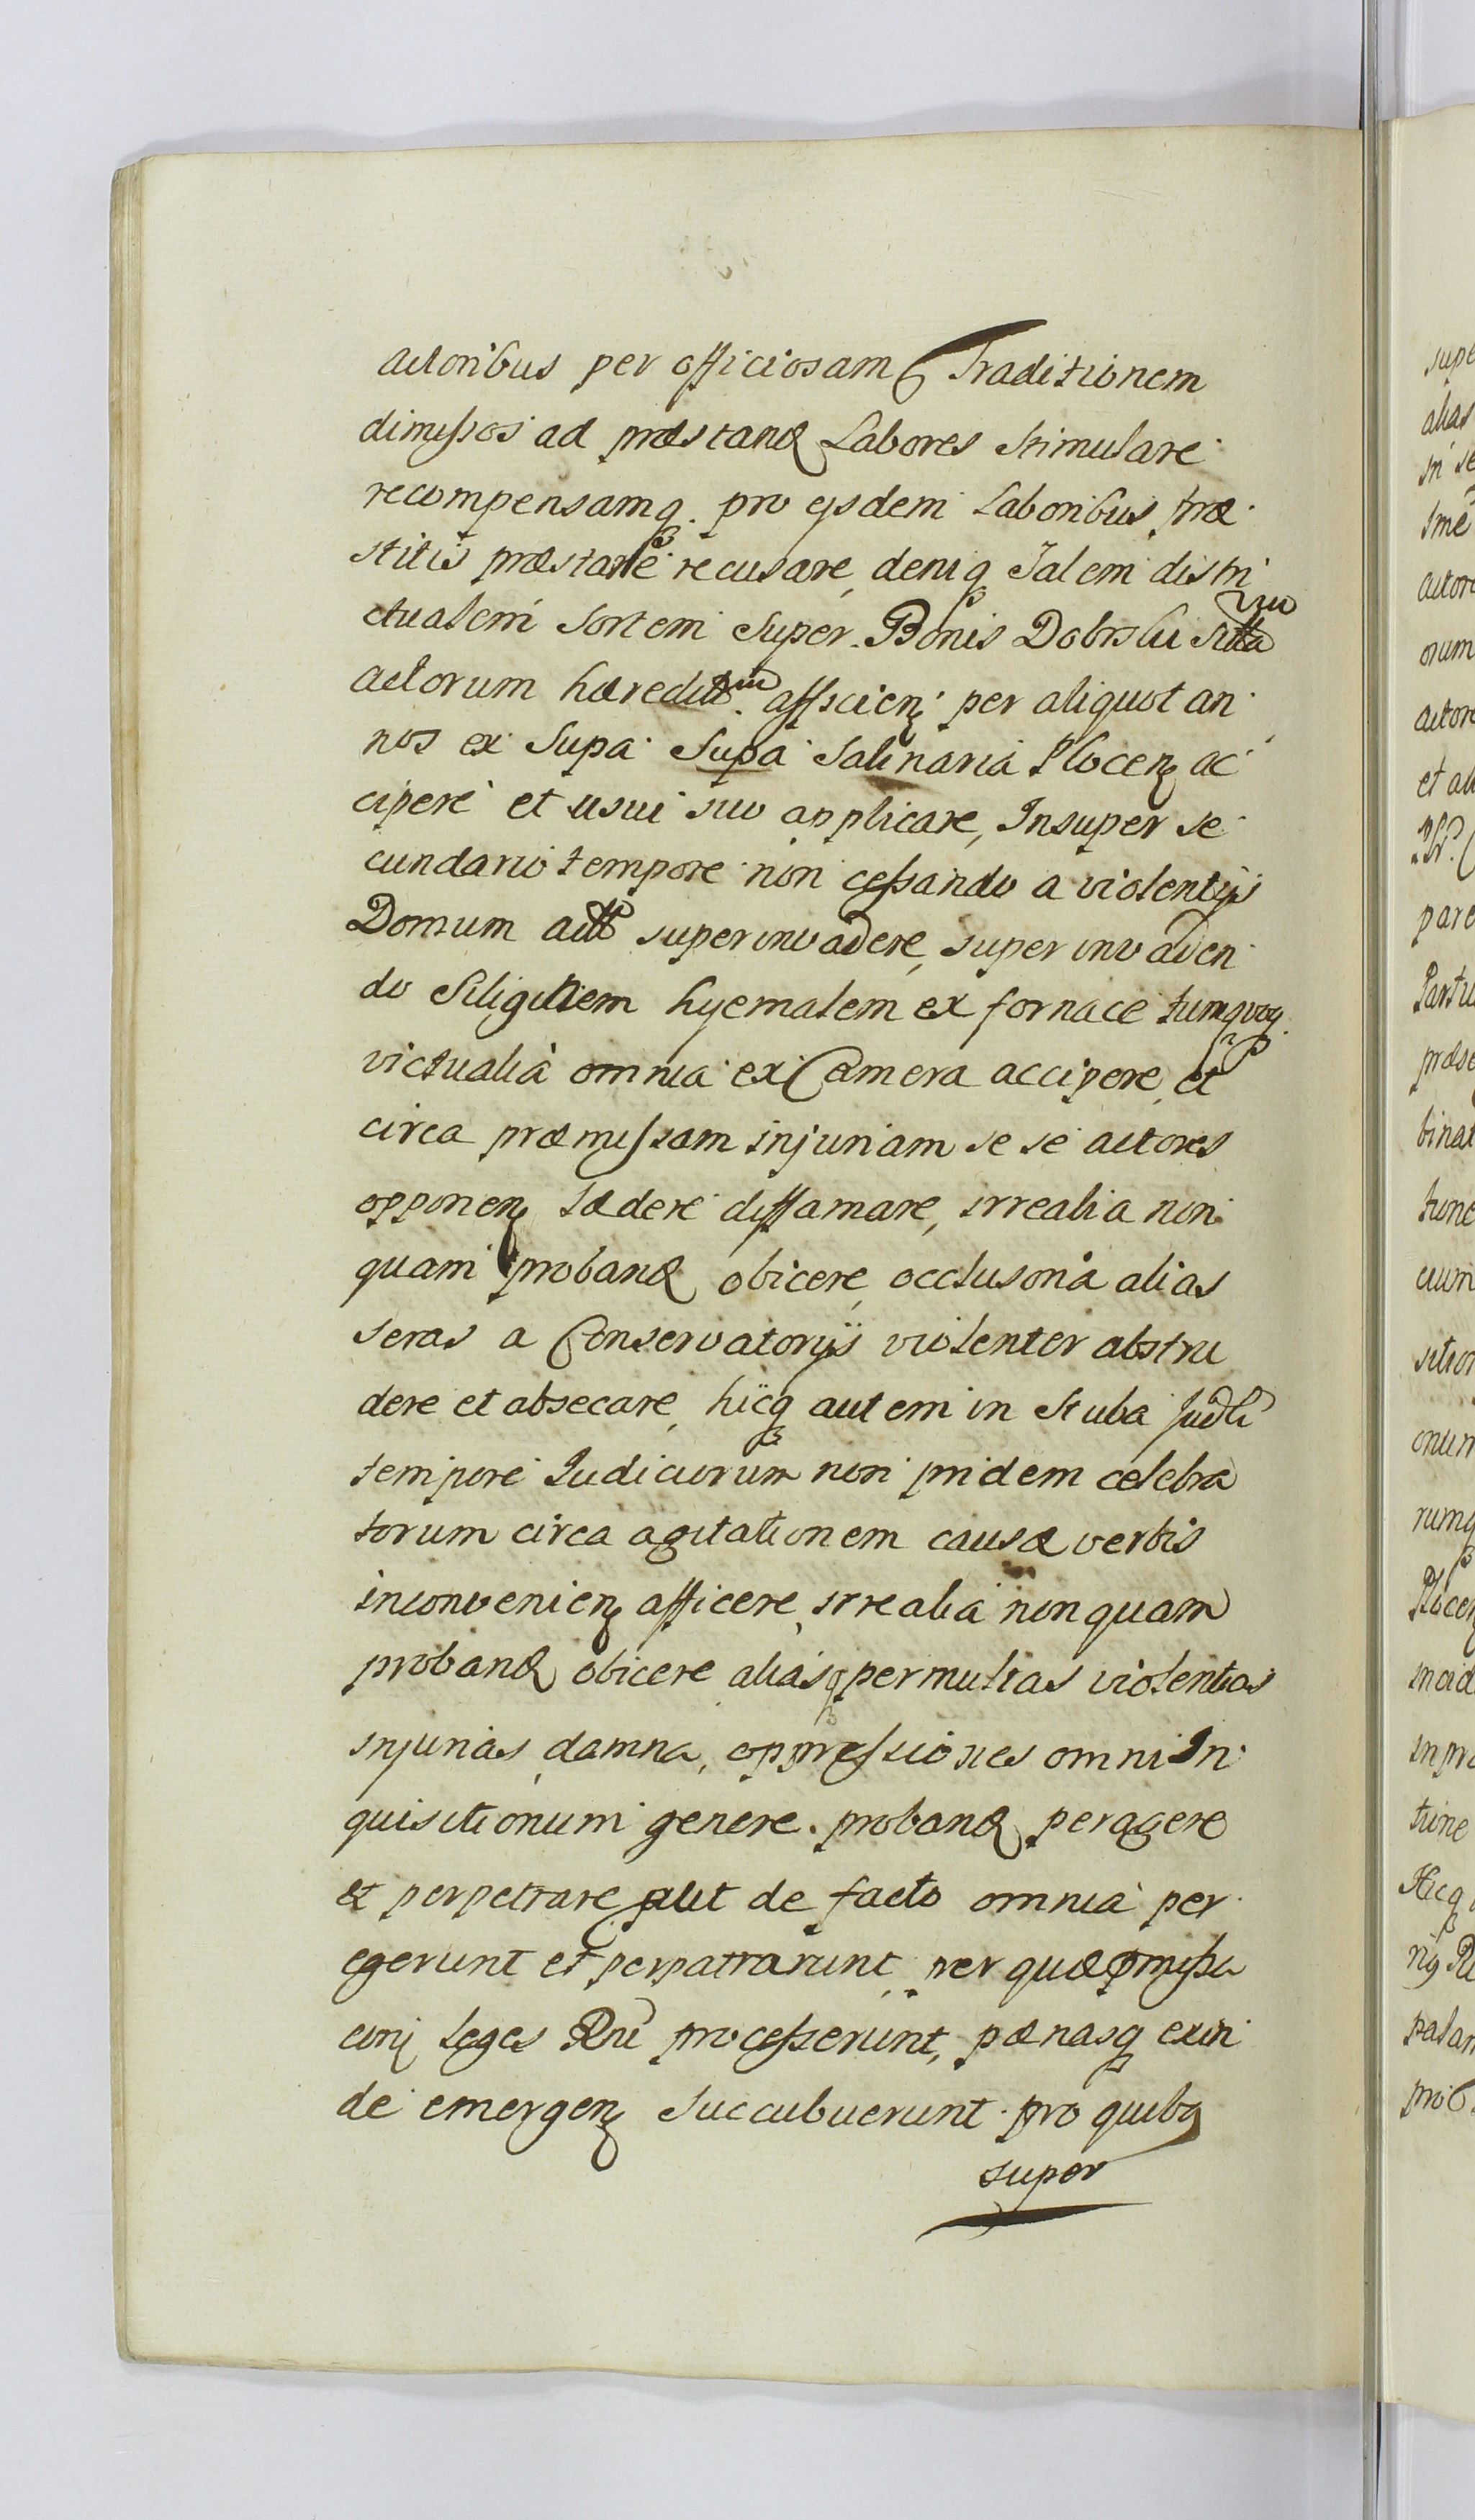 actoribus per officiosam Traditionem
dimissos ad præstand Labores stimulare
recompensamq. pro ejsdem Laboribus præ
stitis præstare recusare, deniq Salem distri
ctualem sortem super Bonis Dobrski
actorum afficien per aliquot an
nos ex Supa Supa Salinaria Plocen ac
cipere et usui suo applicare, Insuper se
cundario tempore non cessando a violentijs
Domum superinvadere, superinvaden
do Siliginem hyemalem ex fornace tumquoq.
victualia omnia ex Camera accipere, et
circa præmissam injuriam se se actores
opponen lædere diffamare, irrealia non
quam proband obicere, occlusoria alias
seras a Conservatorijs violenter abstru
dere et absecare, hicq autem in Stuba Judli
tempore Judiciorum non pridem celebra
torum circa agitationem causæ verbis
inconvenien afficere, irrealia nonquam
proband obicere aliasq permultas violentias
injurias, damna, oppressiones omni In
quisitionum genere. proband peragere
et perpetrare put de facto omnia per
egerunt et perpatrarunt, per quæ pmissa
con leges Rni processerunt, pænasq exin
de emergen succubuerunt pro quibq
super